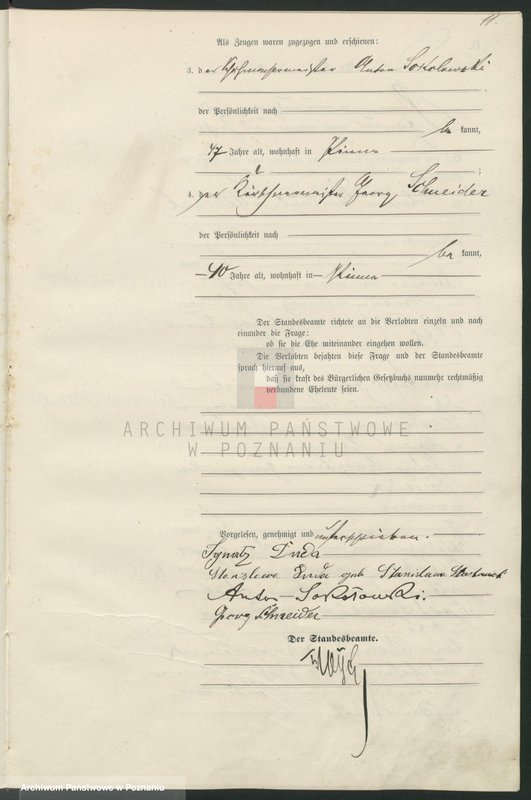 11.
Als Zeugen waren zugezogen und erschienen:
3. der Schuhmachermeister Anton Sokolowski
der Persönlichkeit nach
be kannt,
47 Jahre alt, wohnhaft in Pinne
4. der Kürschnermeister Georg Schneider
;
der Persönlichkeit nach
be kannt,
40 Jahre alt, wohnhaft in Pinne
Der Standesbeamte richtete an die Verlobten einzeln und nach
einander die Frage:
ob sie die Ehe miteinander eingehen wollen.
Die Verlobten bejahten diese Frage und der Standesbeamte
sprach hierauf aus,
daß sie kraft des Bürgerlichen Gesetzbuchs nunmehr rechtmäßig
verbundene Eheleute seien.
ARCHIWUM PAŃSTWOWE
W POZNANIU
Vorgelesen, genehmigt und unterschrieben.
Ignatz Duda
Stanislawa Duda geb
Anton Sokołowski.
Georg Schneider
Der Standesbeamte.
Archiwum Państwowe w Poznaniu